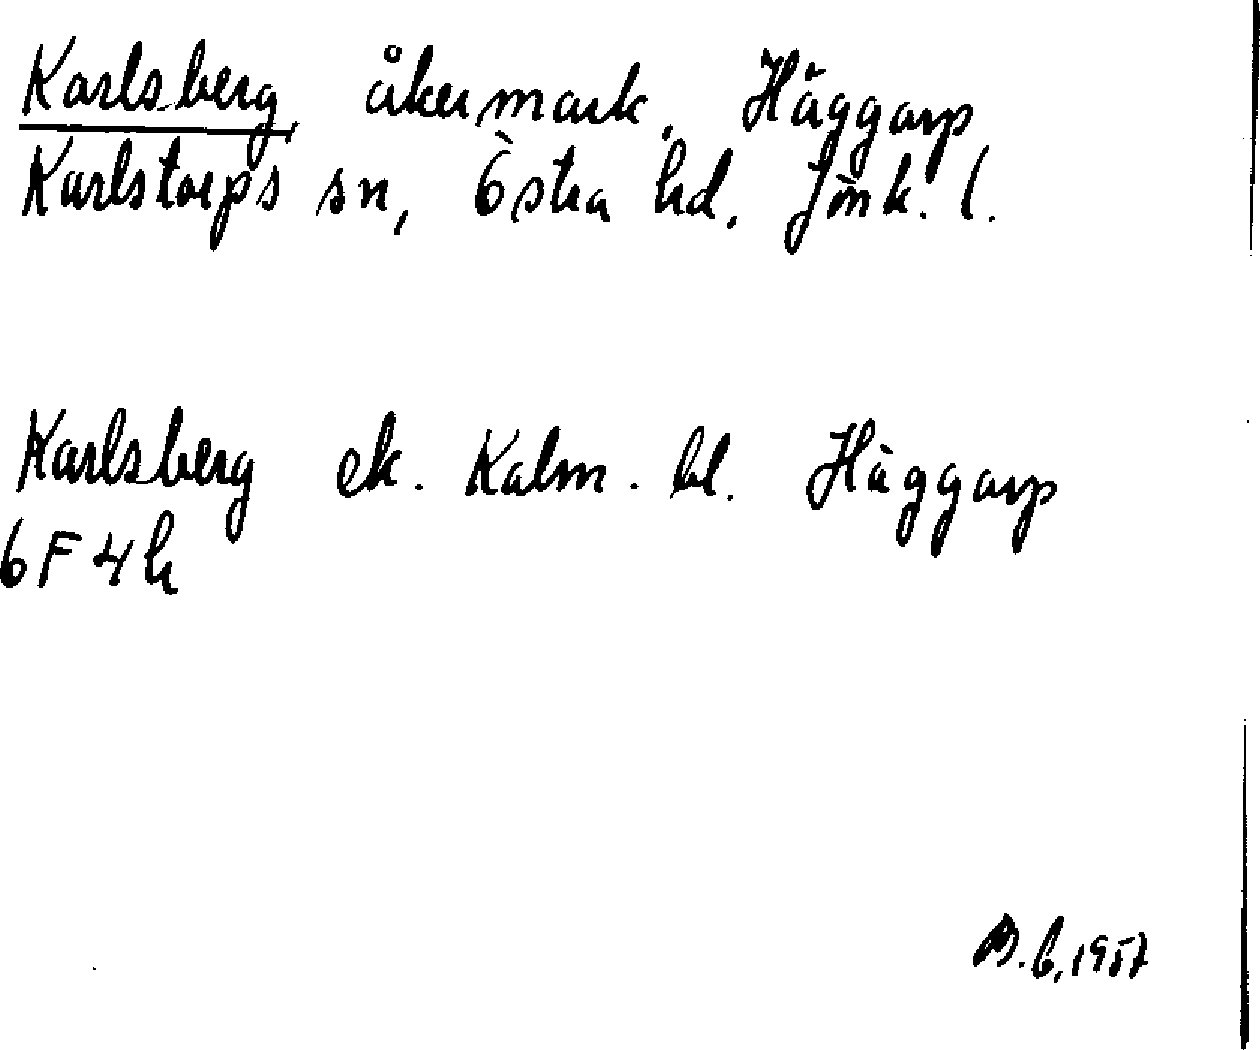 Karlsberg, åkermark, Häggarp
Karlstorps sn, Östra hd. Jönk. l.
Karlsberg ek. Kalm. bl. Häggarp
6 F 4 h
B.G. 1957